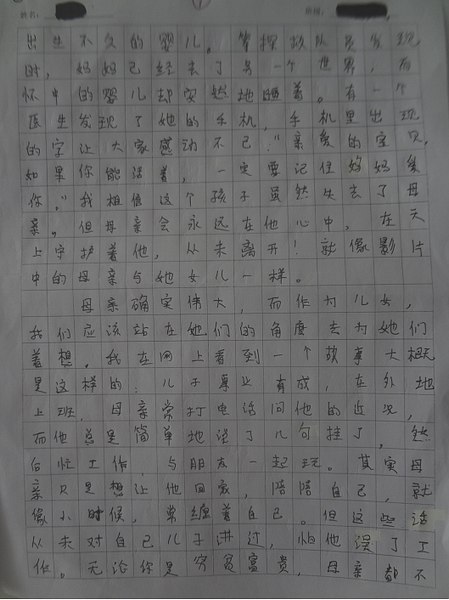 姓名：
班级：
出生不久的婴儿。等探救队员发现
时，妈妈已经去了另一个世界，而
怀中的婴儿却安然地睡着。有一个
医生发现了她的手机，手机里出现
的字让大家感动不已："亲爱的宝贝，
如果你能活着，一定要记住妈妈爱
你。"我相信这个孩子虽然失去了母
亲。但母亲会永远在他心中，在天
上守护着他，从未离开！就像影片
中的母亲与她女儿一样。
母亲确实伟大，而作为儿女，
我们应该站在她们的角度去为她们
着想。我在网上看到一个故事大概
是这样的：儿子事业有成，在外地
上班，母亲常打电话问他的近况，
而他总是简单地说了几句挂了，然
后忙工作，与朋友一起玩。其实母
亲只是想让他回家，陪陪自己，就
像小时候，常缠着自己。但这些话
从未对自己儿子讲过，怕他误了工
作。无论你是穷贫富贵，母亲都不